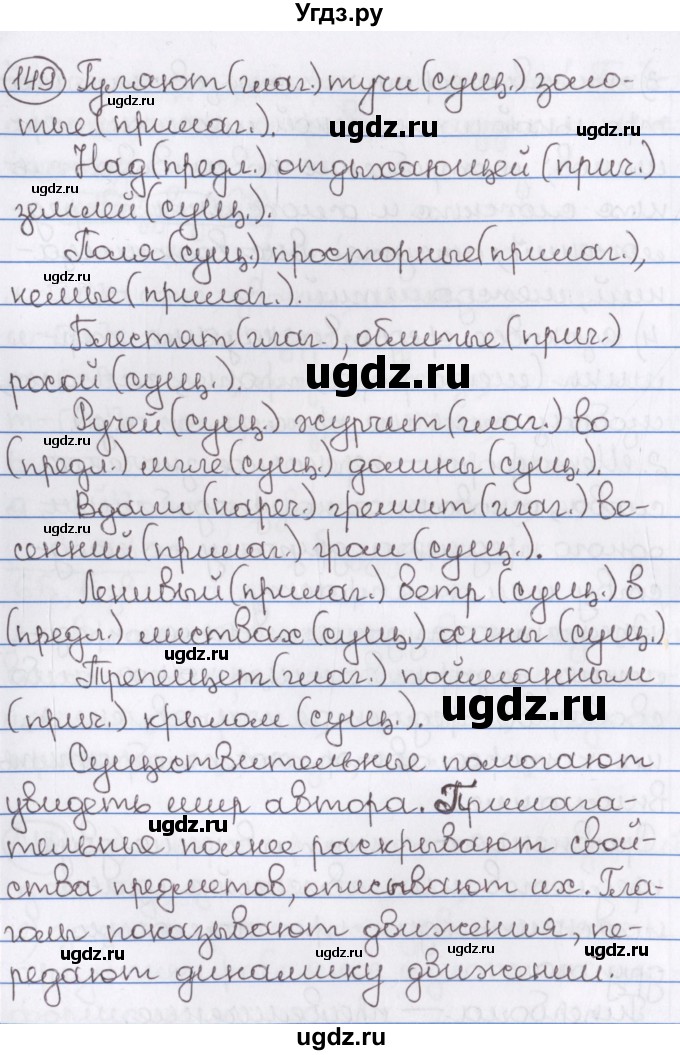 Угдз.ру
149 Гуляют (глаг.) тучи (сущ.) золо-
ugdz.ru
тые (прилаг.).
ugdz.ru
ugdz.ru
Над (предл.) отдыхающей (прич.)
ugdz.ru
землей (сущ.).
Поля (сущ.) просторные (прилаг.),
ugdz.ru
немые (прилаг.).
Блестят (глаг.), облитые (прич.)
ugdz.ru
росой (сущ.).
Ручей (сущ.) журчит (глаг.) во
ugdz.ru
(предл.) мгле (сущ.) долины (сущ.).
Вдали (нареч.) гремит (глаг.) ве-
ugdz.ru
сенний (прилаг.) гром (сущ.).
Ленивый (прилаг.) ветр (сущ.) в
(предл.) листвах (сущ.) осины (сущ.)
ugdz.ru
Трепещет (глаг.) пойманным
ugdz.ru
(прич.) крылом (сущ.).
Существительные помогают
увидеть мир автора. Прилага-
ugdz.ru
тельные полнее раскрывают свой-
ства предметов, описывают их. Гла-
голы показывают движения, пе-
ugdz.ru ugdz.ru ugdz.ru
редают динамику движений.
ugdz.ru